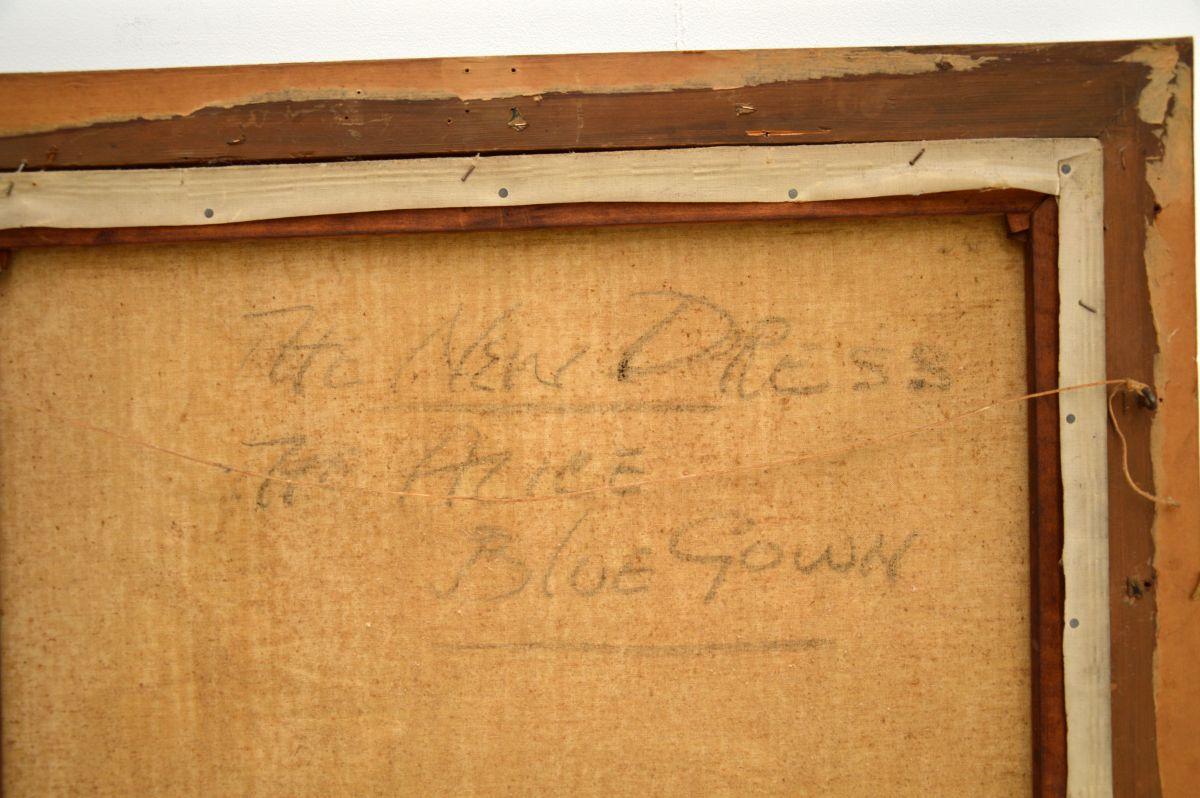 The New Dress
The Alice
Blue Gown